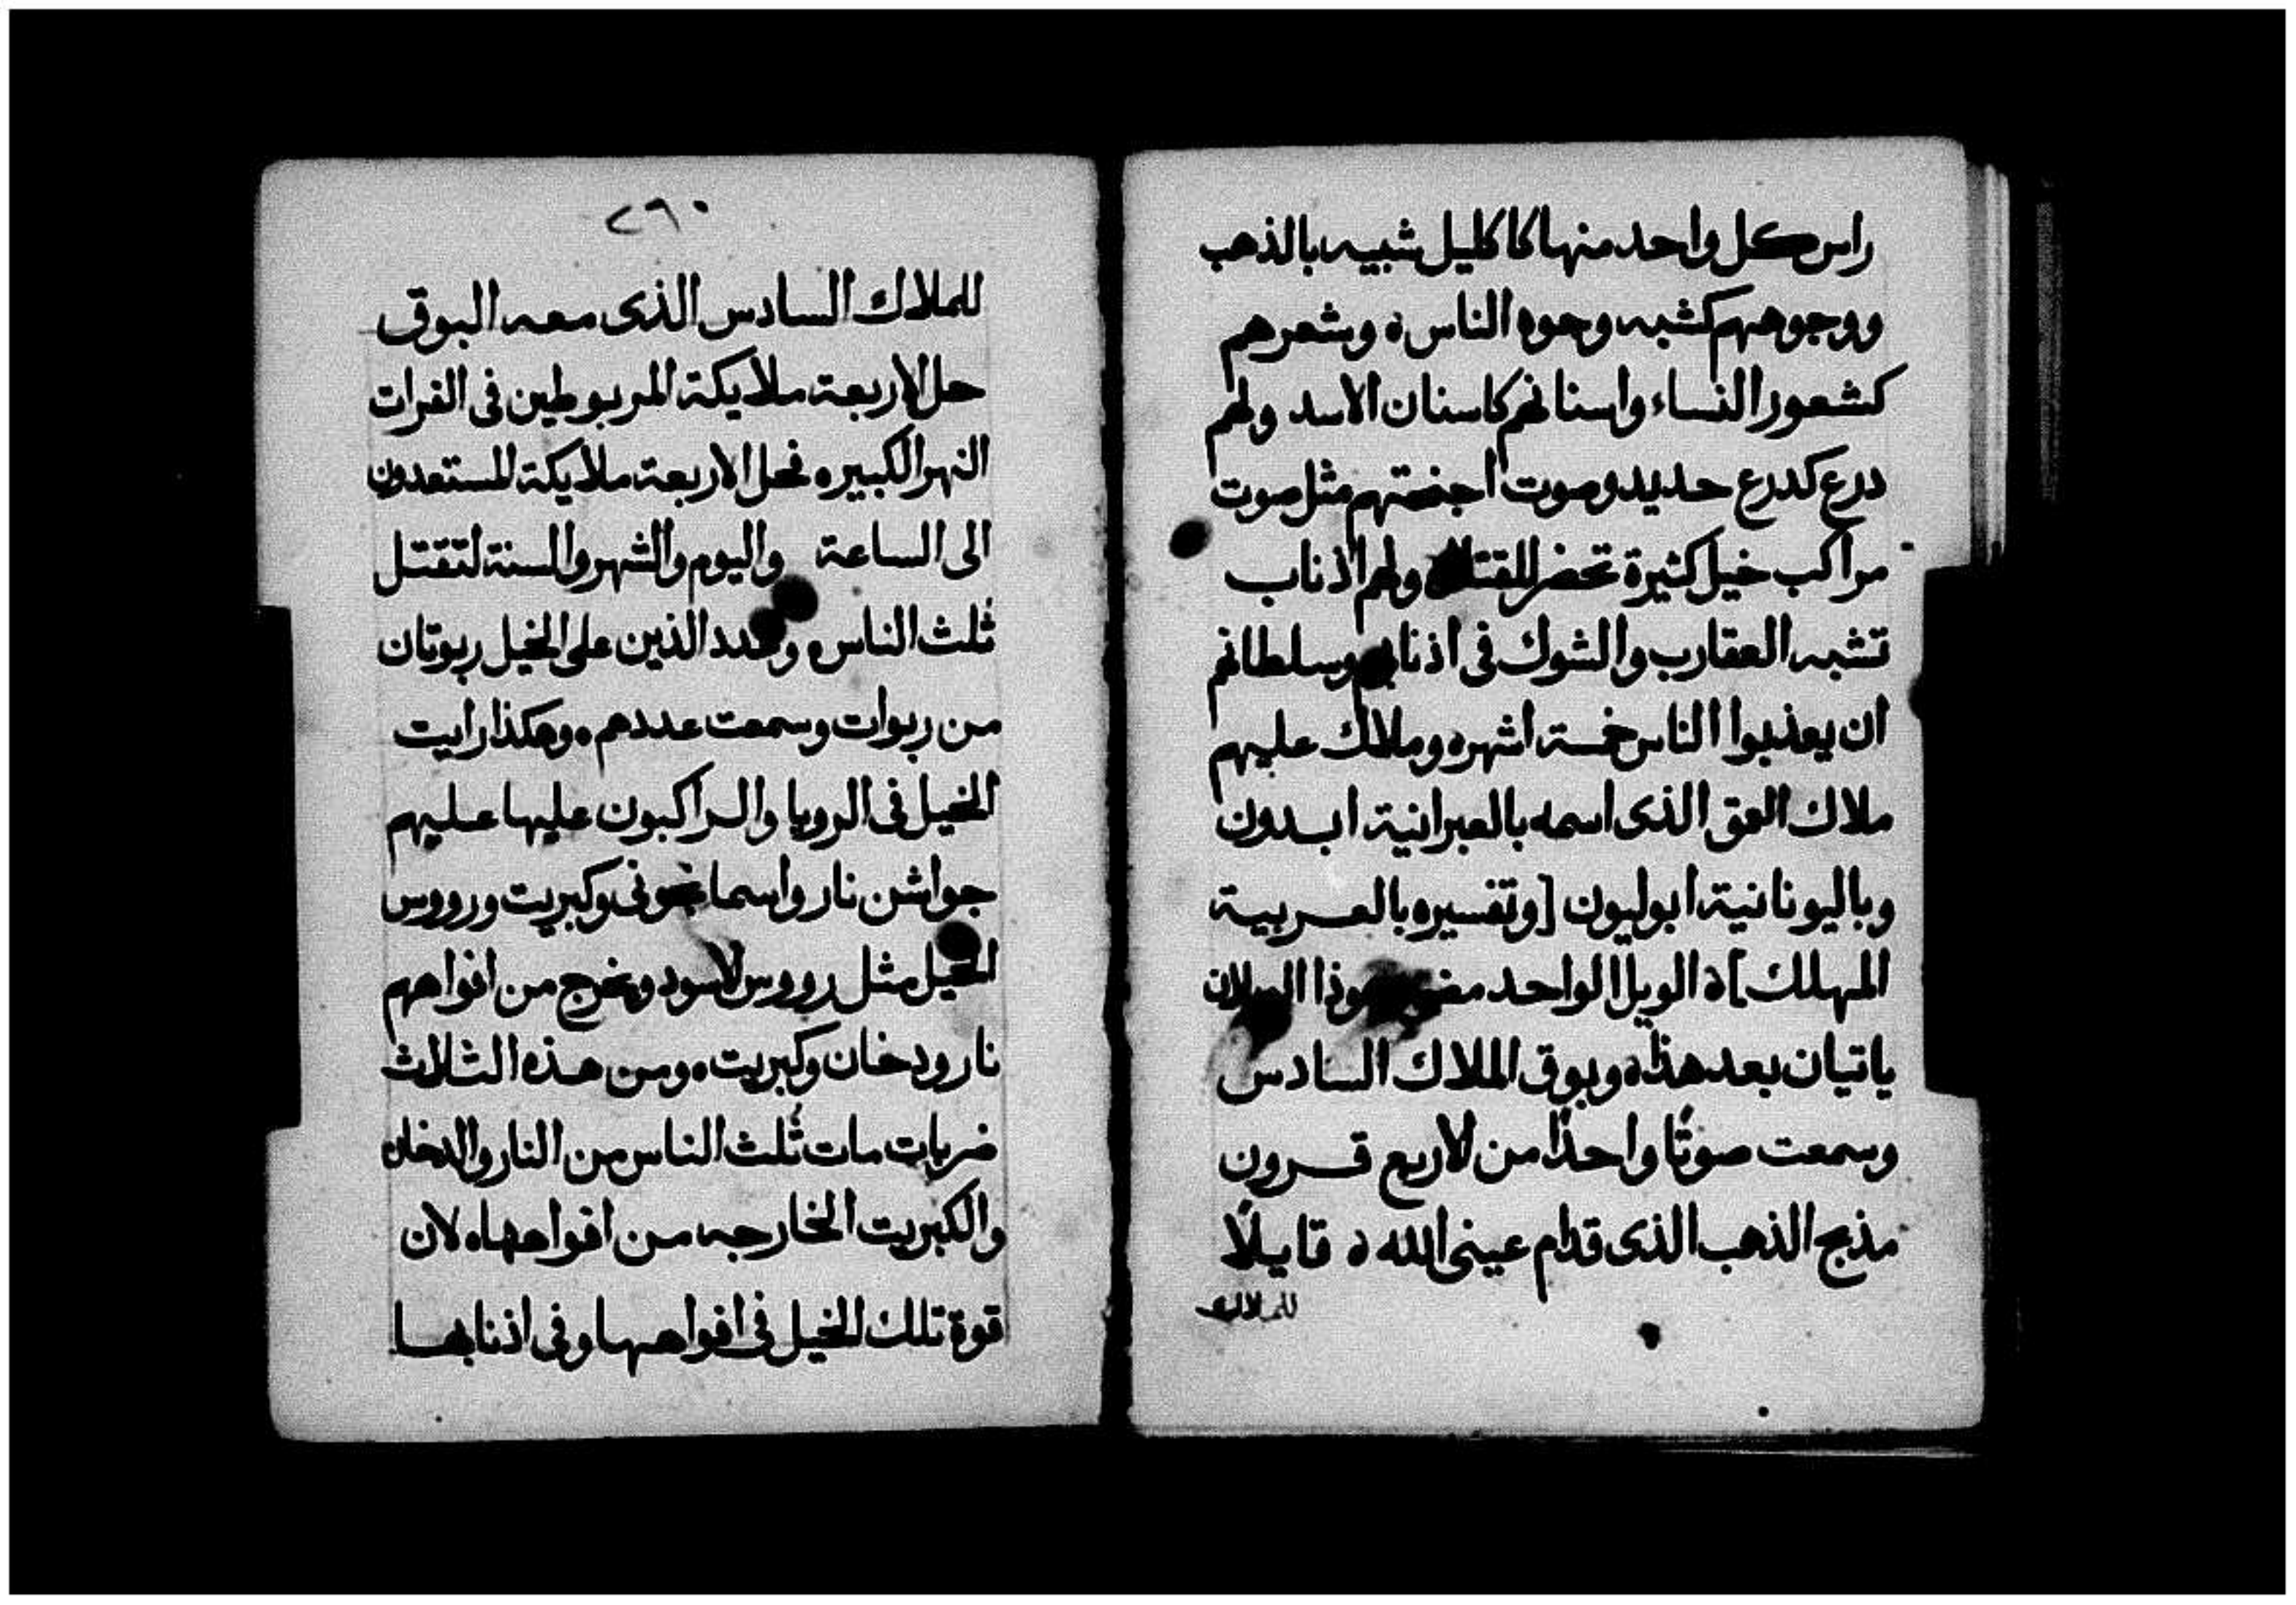 راس كل واحد منها كاكليل شبيه بالذهب
ووجوههم كشبه وجوه الناس ه وشعرهم
كشعور النساء واسنانهم كاسنان الاسد ولهم
درع كدرع حديد وصوت اجنحتهم مثل صوت
مراكب خيل كثيرة تحضر للقتال ولهم اذناب
تشبه العقارب والشوك فى اذنابهم وسلطانهم
ان يعذبوا الناس خمسة اشهر ه وملاك عليهم
ملاك العمق الذى اسمه بالعبرانية ابدون
وباليونانية ابوليون [وتفسيره بالعربية
المهلك] ه الويل الواحد هوذا الويلان
ياتيان بعد هذا ه وبوق الملاك السادس
وسمعت صوتًا واحدًا من الاربع قرون
مذبح الذهب الذى قدام عينى الله ه قايلًا
للملاك
٢٦٠
للملاك السادس الذى معه البوق
حل الاربعة ملايكة المربوطين فى الفرات
النهر الكبير ه فحل الاربعة ملايكة المستعدون
الى الساعة واليوم والشهر والسنة لتقتل
ثلث الناس ه وعدد الذين على الخيل ربوتان
من ربوات وسمعت عددهم ه وهكذا رايت
الخيل فى الرويا والراكبون عليها عليهم
جواشن نار واسمانجونى وكبريت ورووس
الخيل مثل رووس الاسود ويخرج من افواههم
نار ودخان وكبريت ه ومن هذه الثلاث
ضربات مات ثلث الناس من النار والدخان
والكبريت الخارجه من افواهها ه لان
قوة تلك الخيل فى افواهها وفى اذنابها